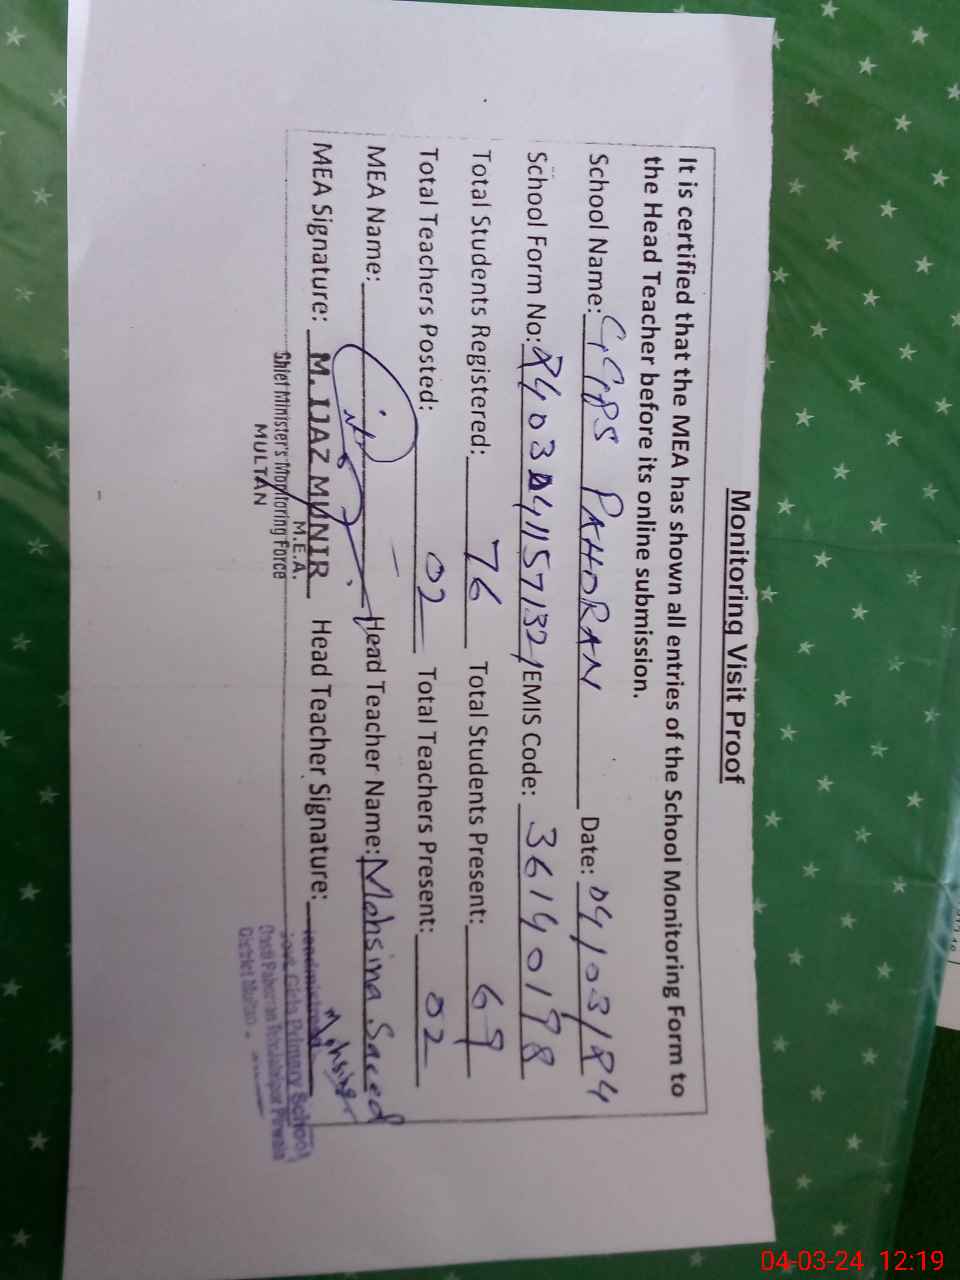 Monitoring Visit Proof
It is certified that the MEA has shown all entries of the School Monitoring Form to
the Head Teacher before its online submission.
School Name: GGPS PAHORAN Date: 04/03/
School Form No: EMIS Code: 36140198
Total Students Registered: 76 Total Students Present: 69
Total Teachers Posted: 02 Total Teachers Present: 02
MEA Name: Head Teacher Name: Mohsina Saeed
MEA Signature: M. IJAZ MUNIR Head Teacher Signature:
M.E.A.
Chief Minister's Monitoring Force
MULTAN
Govt. Girls Primary School
District Multan
04-03-24 12:19